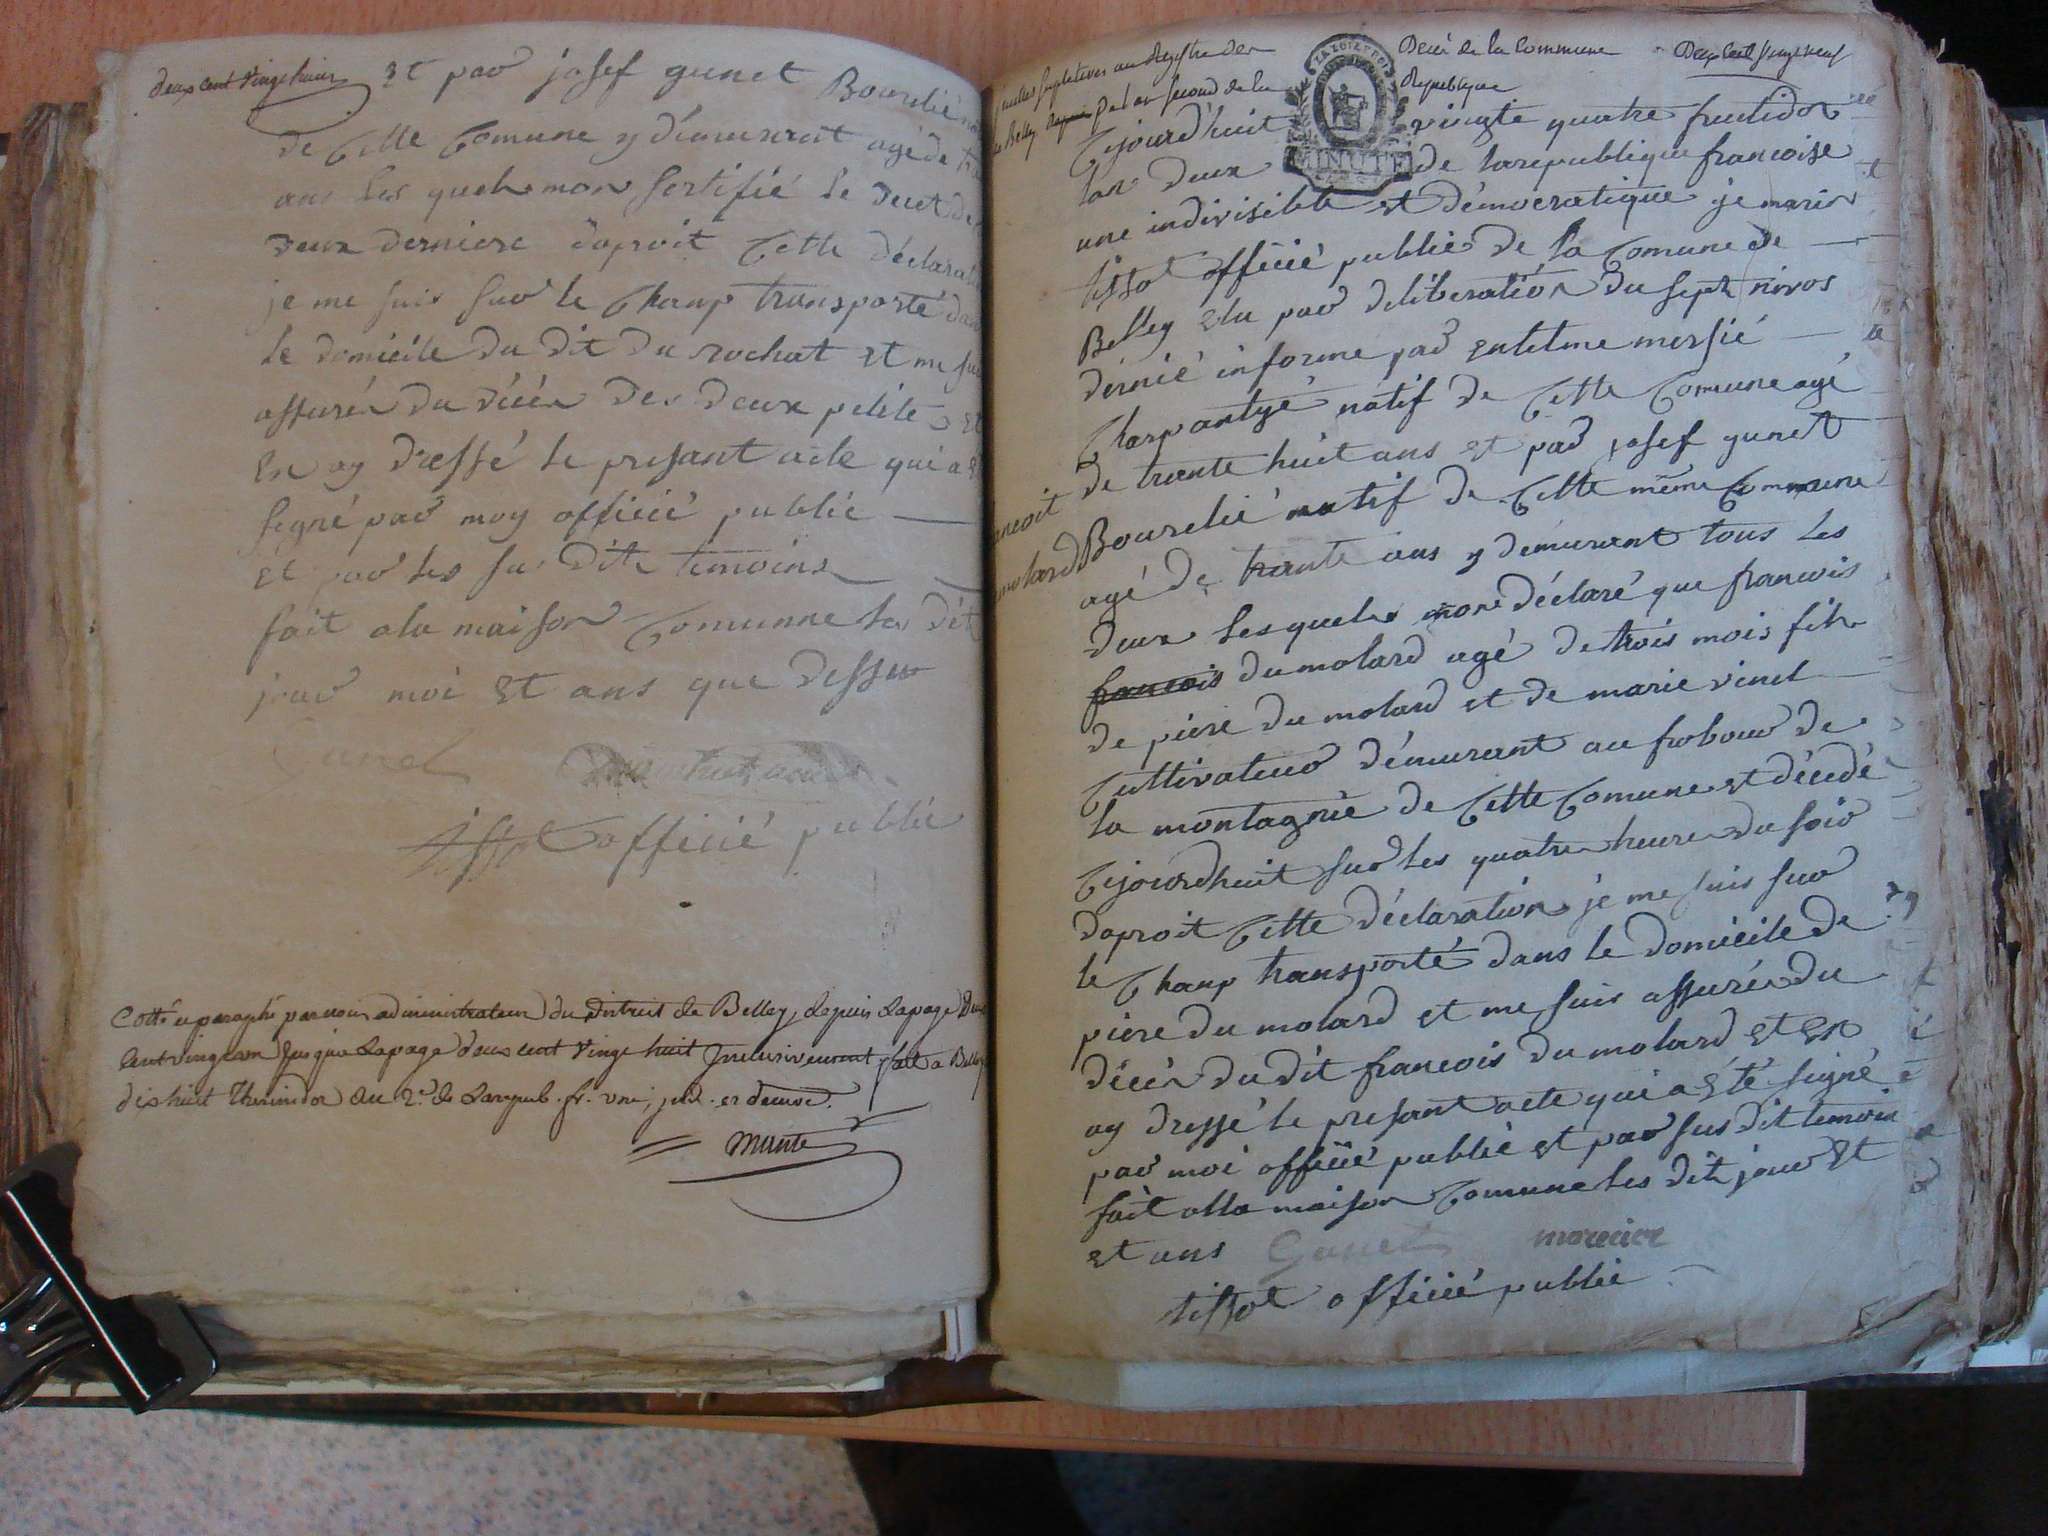 deux cent vingt huit
Et par josef gunet Bourelié
de Cette Comune y démeurant agé de
ans les quels mon sertifié le decet de
deux derniere daproit Cette déclarat
je me suis sur le Champ transporté dans
le domicile du dit du rochat et me sui
assurér du décér des deux petite et
En ay dressé le presant acte qui a
signé par moy officié public
et par les su dits temoins
fait ala maison Comunne les dit
jour moi et ans que dessu
Gunet
tissot officié public
Cotté et paraphé par nous administrateur du district de Belley, depuis la page deux
cent vingt un jusqua la page deux cent vingt huit inclusivement fait a Belley
dix huit thermidor an 2.e de la repub. fr. une, ind. et democ.
Munte
feuilles supletives au Registre des
Décès de la Commune
Deux cent vingt neuf
de Belley pr l'an second de la
République
LA LOI ET LE ROI
MINUTE
Cejourd'huit vingte quatre fructidor
lan deux de larepublique francoise
une indivisible et démocratique je marin
tissot officié public de la Comune de
Belley Elu par deliberation du sept nivos
dernié informe par entelme mersié
Charpantyé natif de Cette Comune agé
de trante huit ans et par josef gunet
Bourelié natif de Cette même Commune
agé de trante ans y démurant tous les
deux lesquels mon déclaré que francois
francois du molard agé de trois mois fils
de piere du molard et de marie vinet
Cultivateur démurant au frobour de
la montagnie de Cette Comune et décédé
Cejourdhuit sur les quatre heures du soir
daproit Cette déclaration je me suis sur
le Champ transporté dans le domicile de
piere du molard et me suis assurér du
décér du dit francois du molard et En
ay dressé le presant acte qui a été signé
par moi officié public et par sus dit temoin
fait alla maison Comune les dit jour et
et ans Gunet mercier
tissot officié public
ancoit
molard